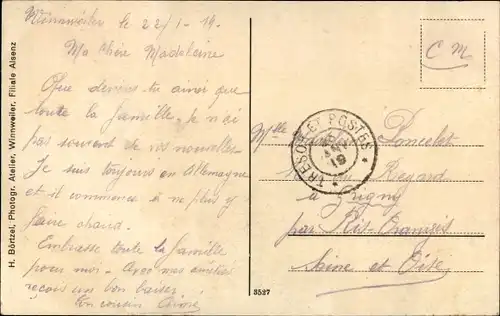 Winnweiler le 22/1-19.
Ma chère Madeleine
Que deviens tu ainsi que
toute la famille. Je n'ai
pas souvent de vos nouvelles
Je suis toujours en Allemagne
et il commence à ne plus y
faire chaud.
Embrasse toute la famille
pour moi. Avec mes amitiés
reçois un bon baiser.
Ton cousin
H. Börtzel, Photogr. Atelier, Winnweiler, Filiale Alsenz
C M
TRESOR ET POSTES
19
Mlle Poncelet
Regard
à Grigny
par Ris-Orangis
Seine et Oise
3527